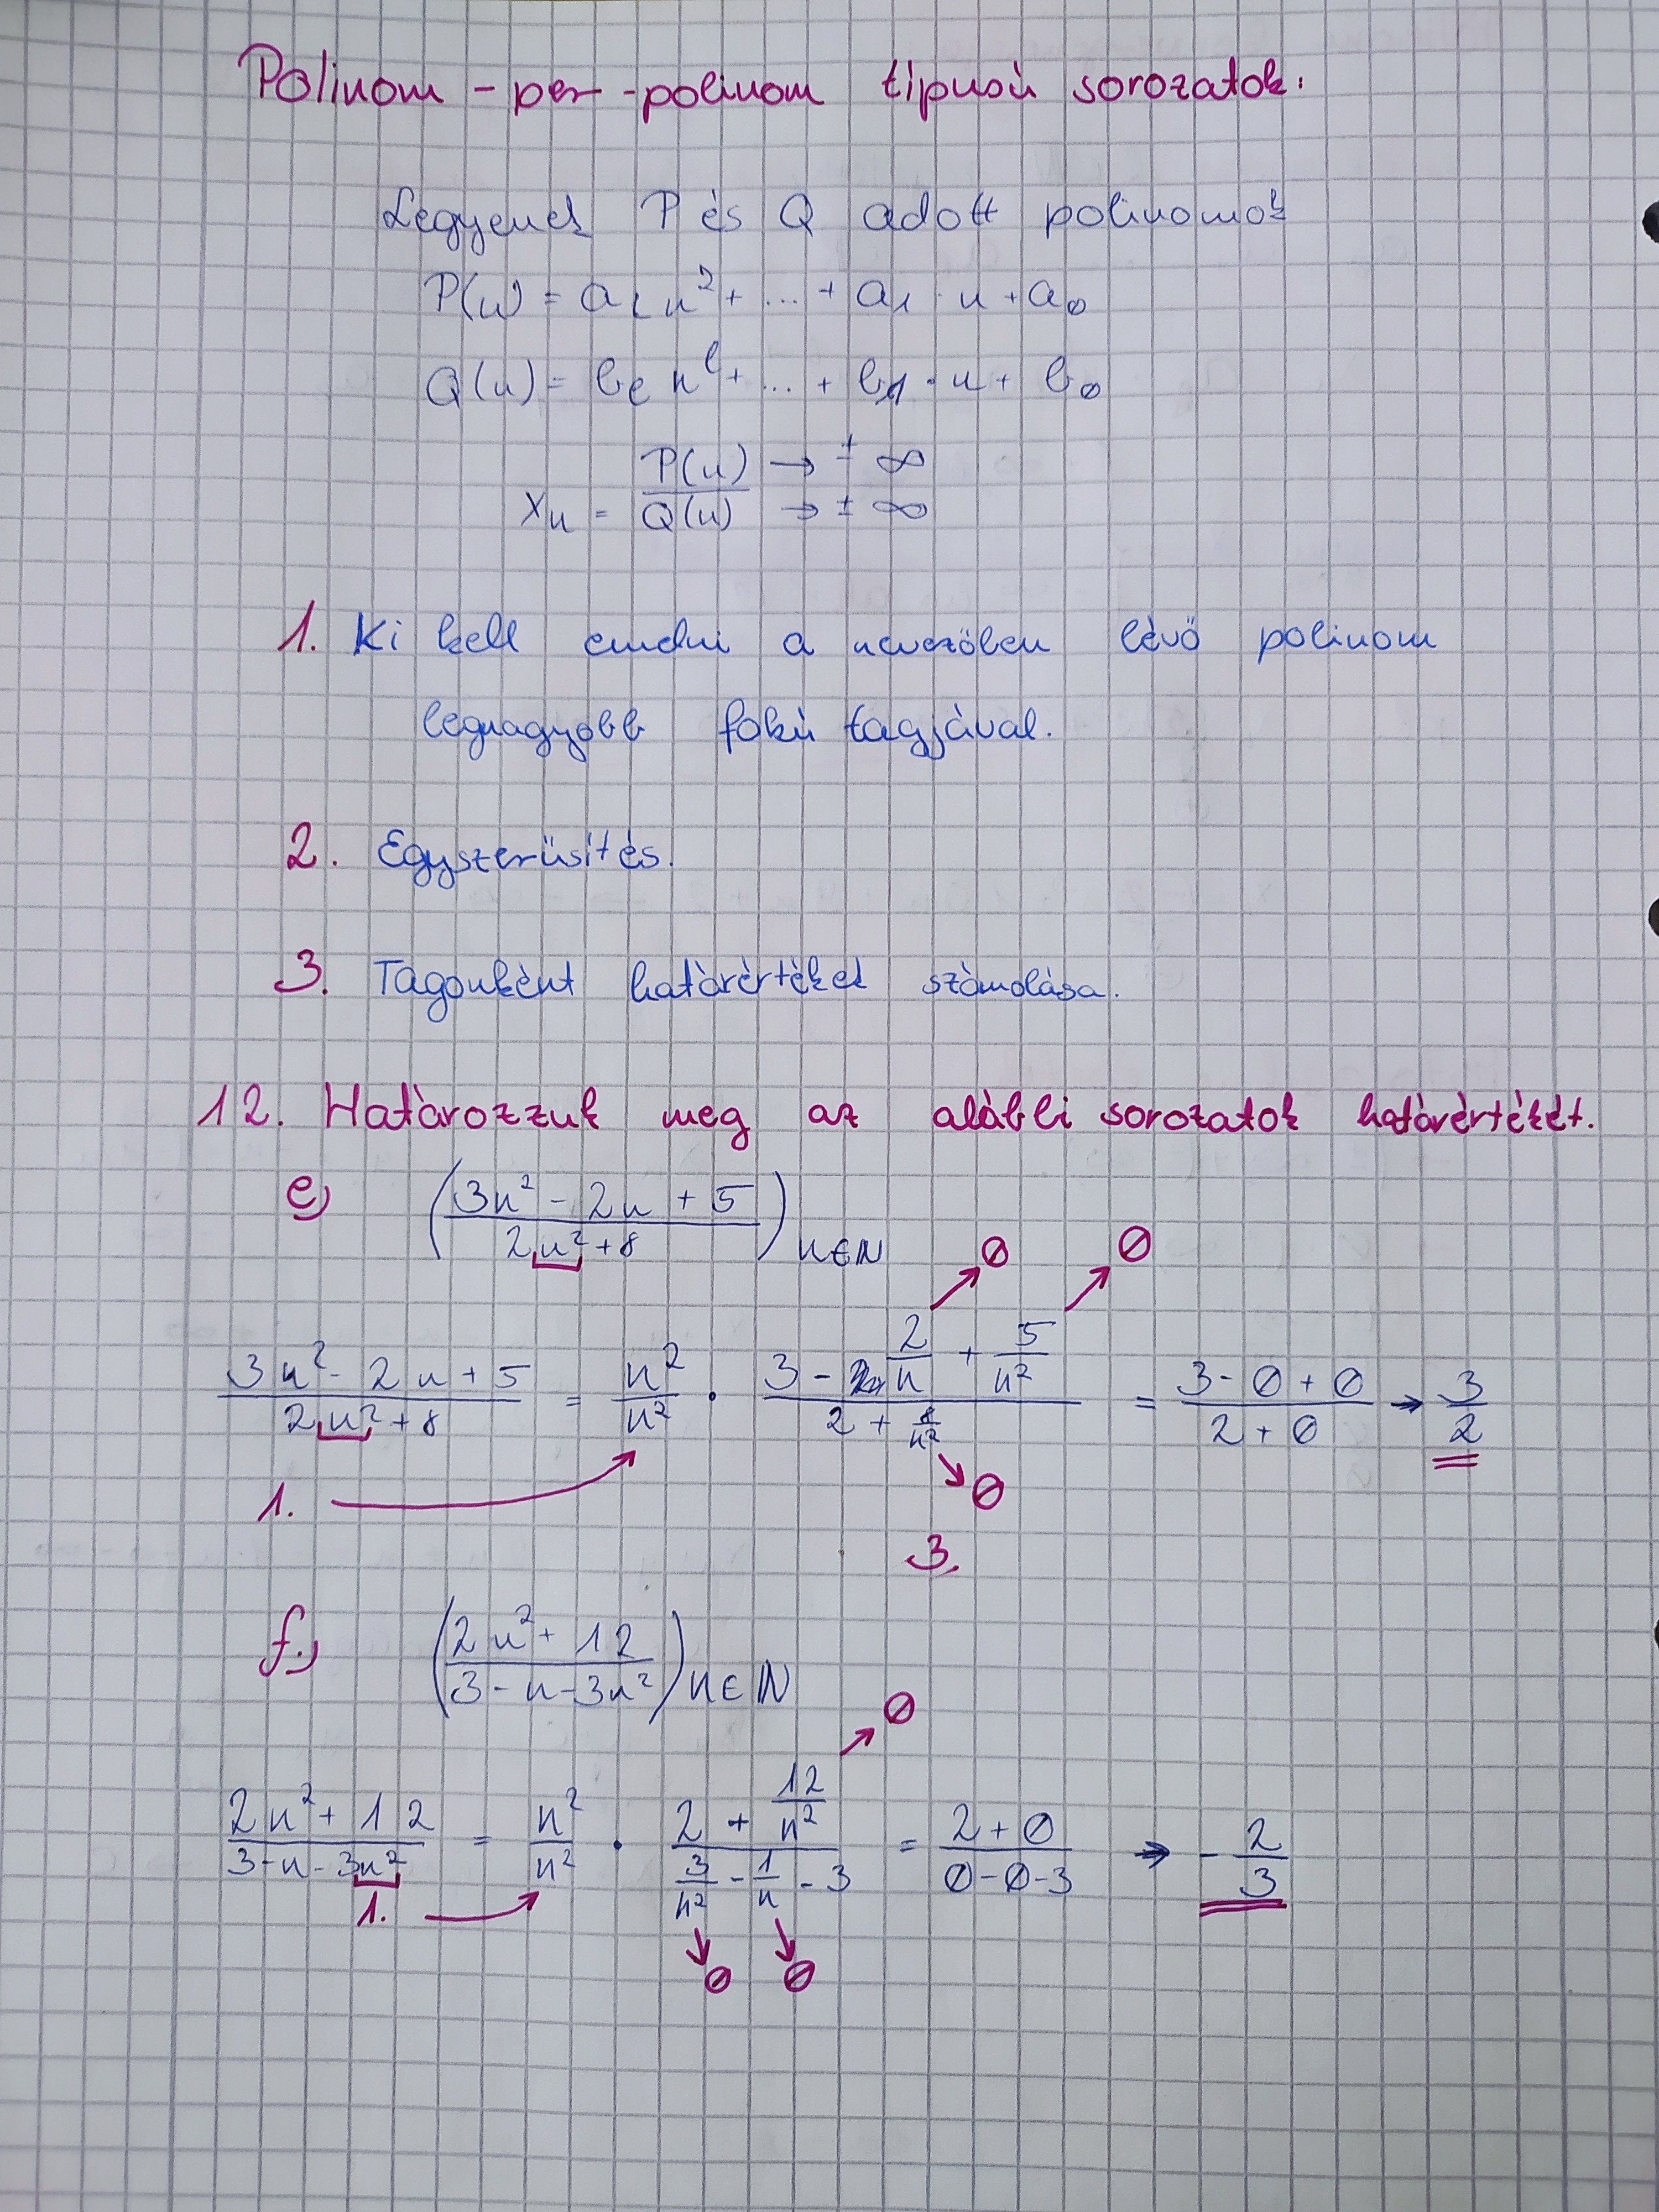 Polinom-per-polinom típusú sorozatok:
Legyenek P és Q adott polinomok
P(n) = a₂ n² + ... + a₁ · n + a₀
Q(n) = bₗ nˡ + ... + b₁ · n + b₀
xₙ = P(n)/Q(n) → ±∞ / → ±∞
1. Ki kell emelni a nevezőben lévő polinom
legnagyobb fokú tagjával.
2. Egyszerüsítés.
3. Tagonként határértékek számolása.
12. Határozzuk meg az alábbi sorozatok határértékét.
e) ((3n² - 2n + 5)/(2n² + 8)) n∈N
0 0
(3n² - 2n + 5)/(2n² + 8) = n²/n² · (3 - 2/n + 5/n²)/(2 + 8/n²) = (3 - 0 + 0)/(2 + 0) → 3/2
1. 0
3.
f.) ((2n² + 12)/(3 - n - 3n²)) n∈N
0
(2n² + 12)/(3 - n - 3n²) = n²/n² · (2 + 12/n²)/(3/n² - 1/n - 3) = (2 + 0)/(0 - 0 - 3) → -2/3
1.
0 0